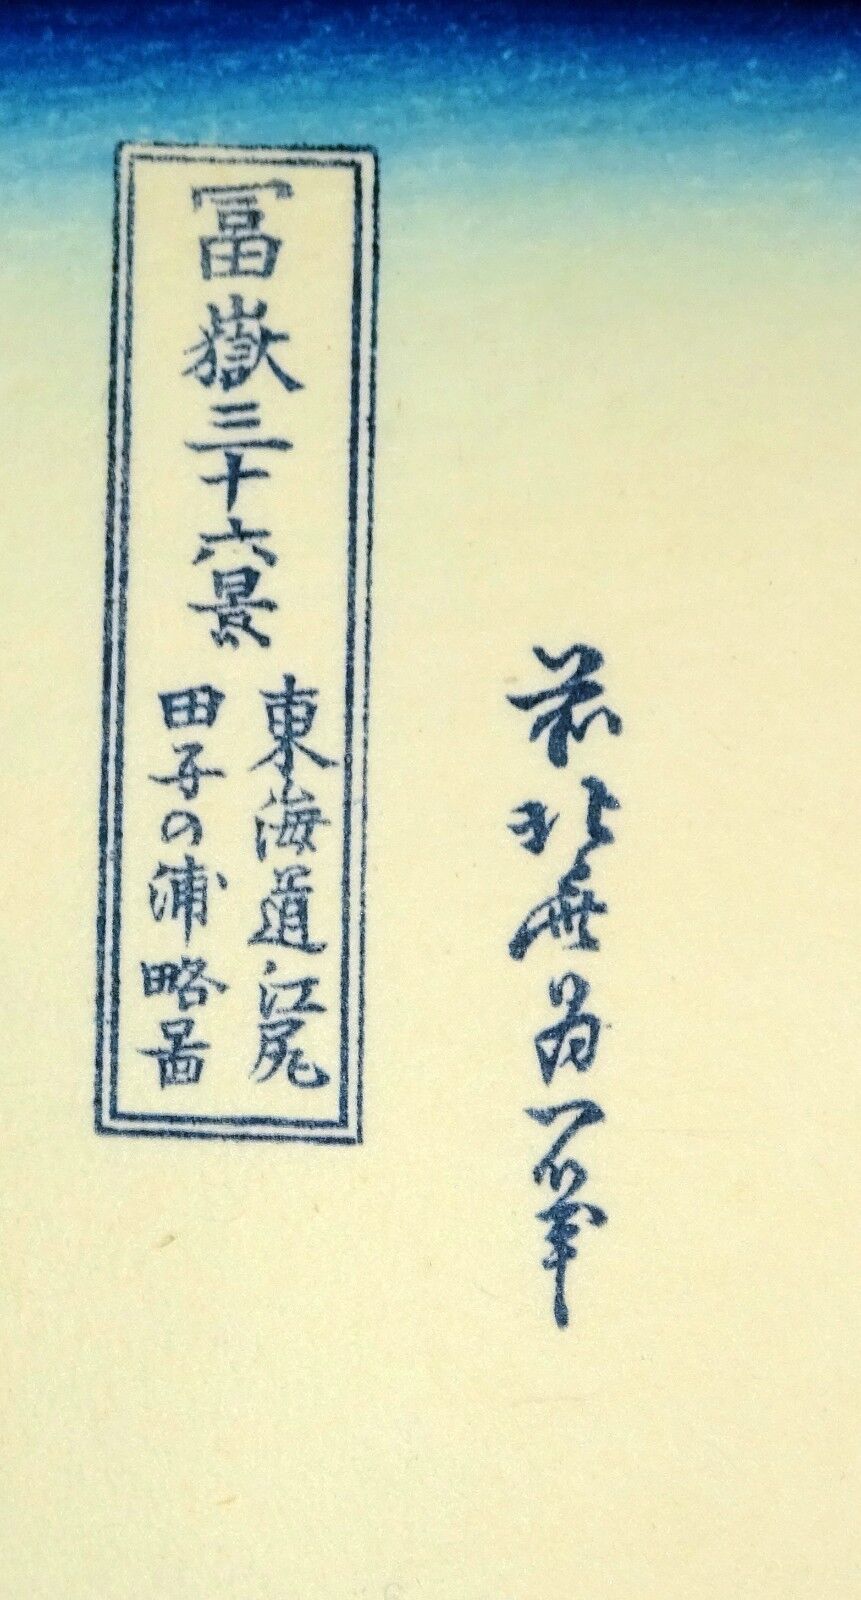 冨嶽三十六景
東海道江尻
田子の浦略啚
前北斎為一筆